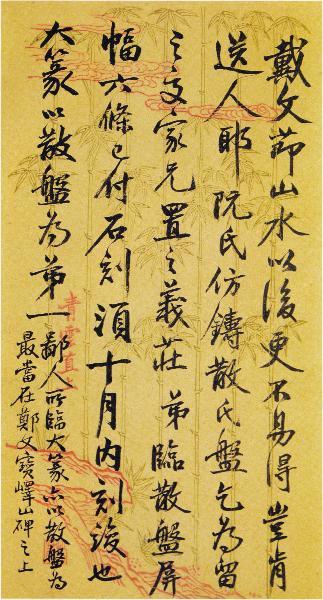 戴文節山水以後更不易得豈肯
送人耶阮氏仿鑄散氏盤乞為留
之交家兄置之義莊弟臨散盤屏
幅六條已付石刻須十月内刻竣也
大篆以散盤為第一鄙人所臨大篆亦以散盤為
最當在鄭文寶嶧山碑之上
青雲直上